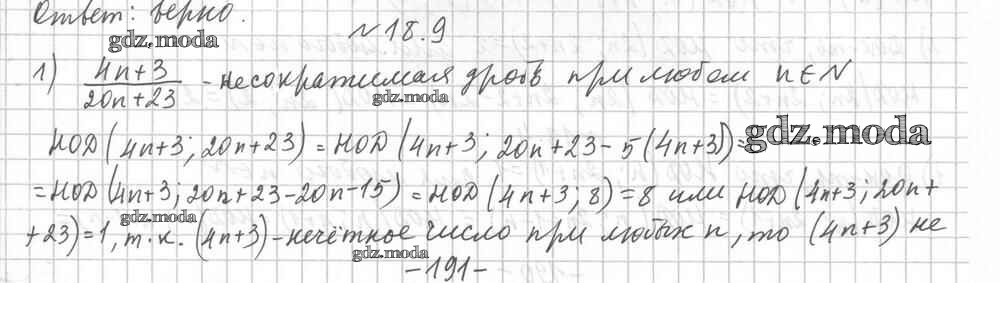 Ответ: верно.
gdz.moda
№ 18.9
1) (4n+3)/(20n+23) - несократимая дробь при любом n∈N
gdz.moda
НОД(4n+3; 20n+23) = НОД(4n+3; 20n+23-5(4n+3)) =
gdz.moda
= НОД(4n+3; 20n+23-20n-15) = НОД(4n+3; 8) = 8 или НОД(4n+3; 20n+
gdz.moda
+23)=1, т.к. (4n+3) - нечётное число при любых n, то (4n+3) не
gdz.moda
-191-